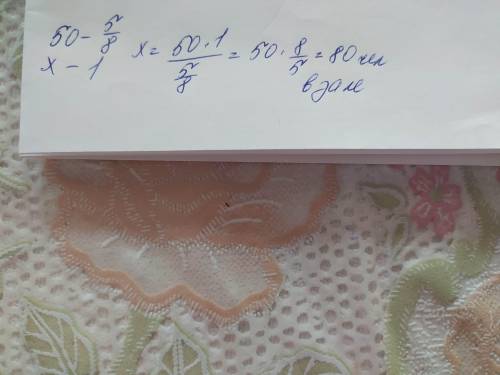 50 - 5/8
x - 1 x = 50·1 / 5/8 = 50 · 8/5 = 80 чел
в зале